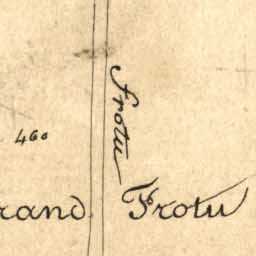 frotu
460
rand. Frotu